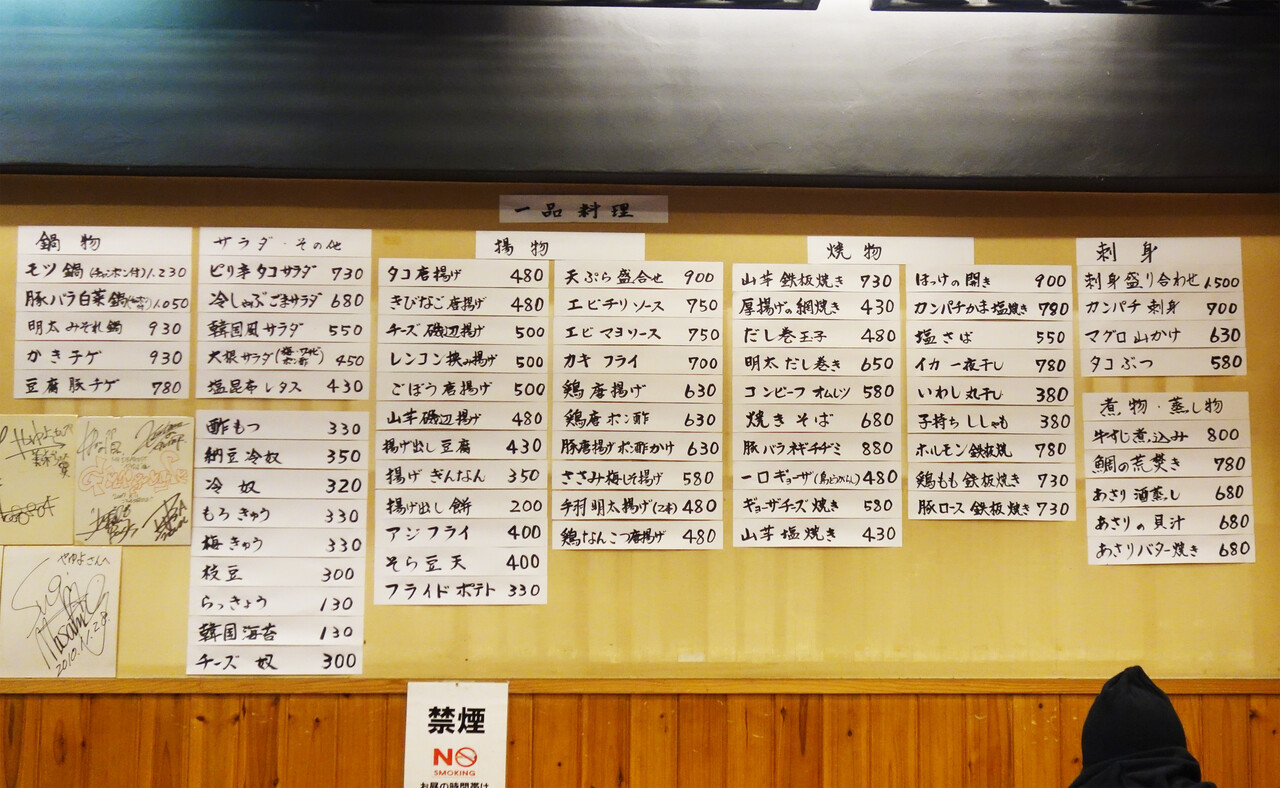 一品料理
鍋物
モツ鍋(チャンポン付) 1.230
豚バラ白菜鍋 1.050
明太みぞれ鍋 930
かきチゲ 930
豆腐豚チゲ 780
サラダ・その他
ピリ辛タコサラダ 730
冷しゃぶごまサラダ 680
韓国風サラダ 550
大根サラダ 450
塩昆布レタス 430
酢もつ 330
納豆冷奴 350
冷奴 320
もろきゅう 330
梅きゅう 330
枝豆 300
らっきょう 130
韓国海苔 130
チーズ奴 300
揚物
タコ唐揚げ 480
きびなご唐揚げ 480
チーズ磯辺揚げ 500
レンコン挟み揚げ 500
ごぼう唐揚げ 500
山芋磯辺揚げ 480
揚げ出し豆腐 430
揚げぎんなん 350
揚げ出し餅 200
アジフライ 400
そら豆天 400
フライドポテト 330
天ぷら盛合せ 900
エビチリソース 750
エビマヨソース 750
カキフライ 700
鶏唐揚げ 630
鶏唐ポン酢 630
豚唐揚げポン酢かけ 630
ささみ梅しそ揚げ 580
手羽明太揚げ(2本) 480
鶏なんこつ唐揚げ 480
焼物
山芋鉄板焼き 730
厚揚げの網焼き 430
だし巻玉子 480
明太だし巻き 650
コンビーフオムレツ 580
焼きそば 680
豚バラネギチヂミ 880
一口ギョーザ 480
ギョーザチーズ焼き 580
山芋塩焼き 430
ほっけの開き 900
カンパチかま塩焼き 780
塩さば 550
イカ一夜干し 780
いわし丸干し 380
子持ちししゃも 380
ホルモン鉄板焼 780
鶏もも鉄板焼き 730
豚ロース鉄板焼き 730
刺身
刺身盛り合わせ 1.500
カンパチ刺身 700
マグロ山かけ 630
タコぶつ 580
煮物・蒸し物
牛すじ煮込み 800
鯛の荒焚き 780
あさり酒蒸し 680
あさりの貝汁 680
あさりバター焼き 680
やゆよさんへ
2010.11.28.
禁煙
NO
SMOKING
お昼の時間帯は